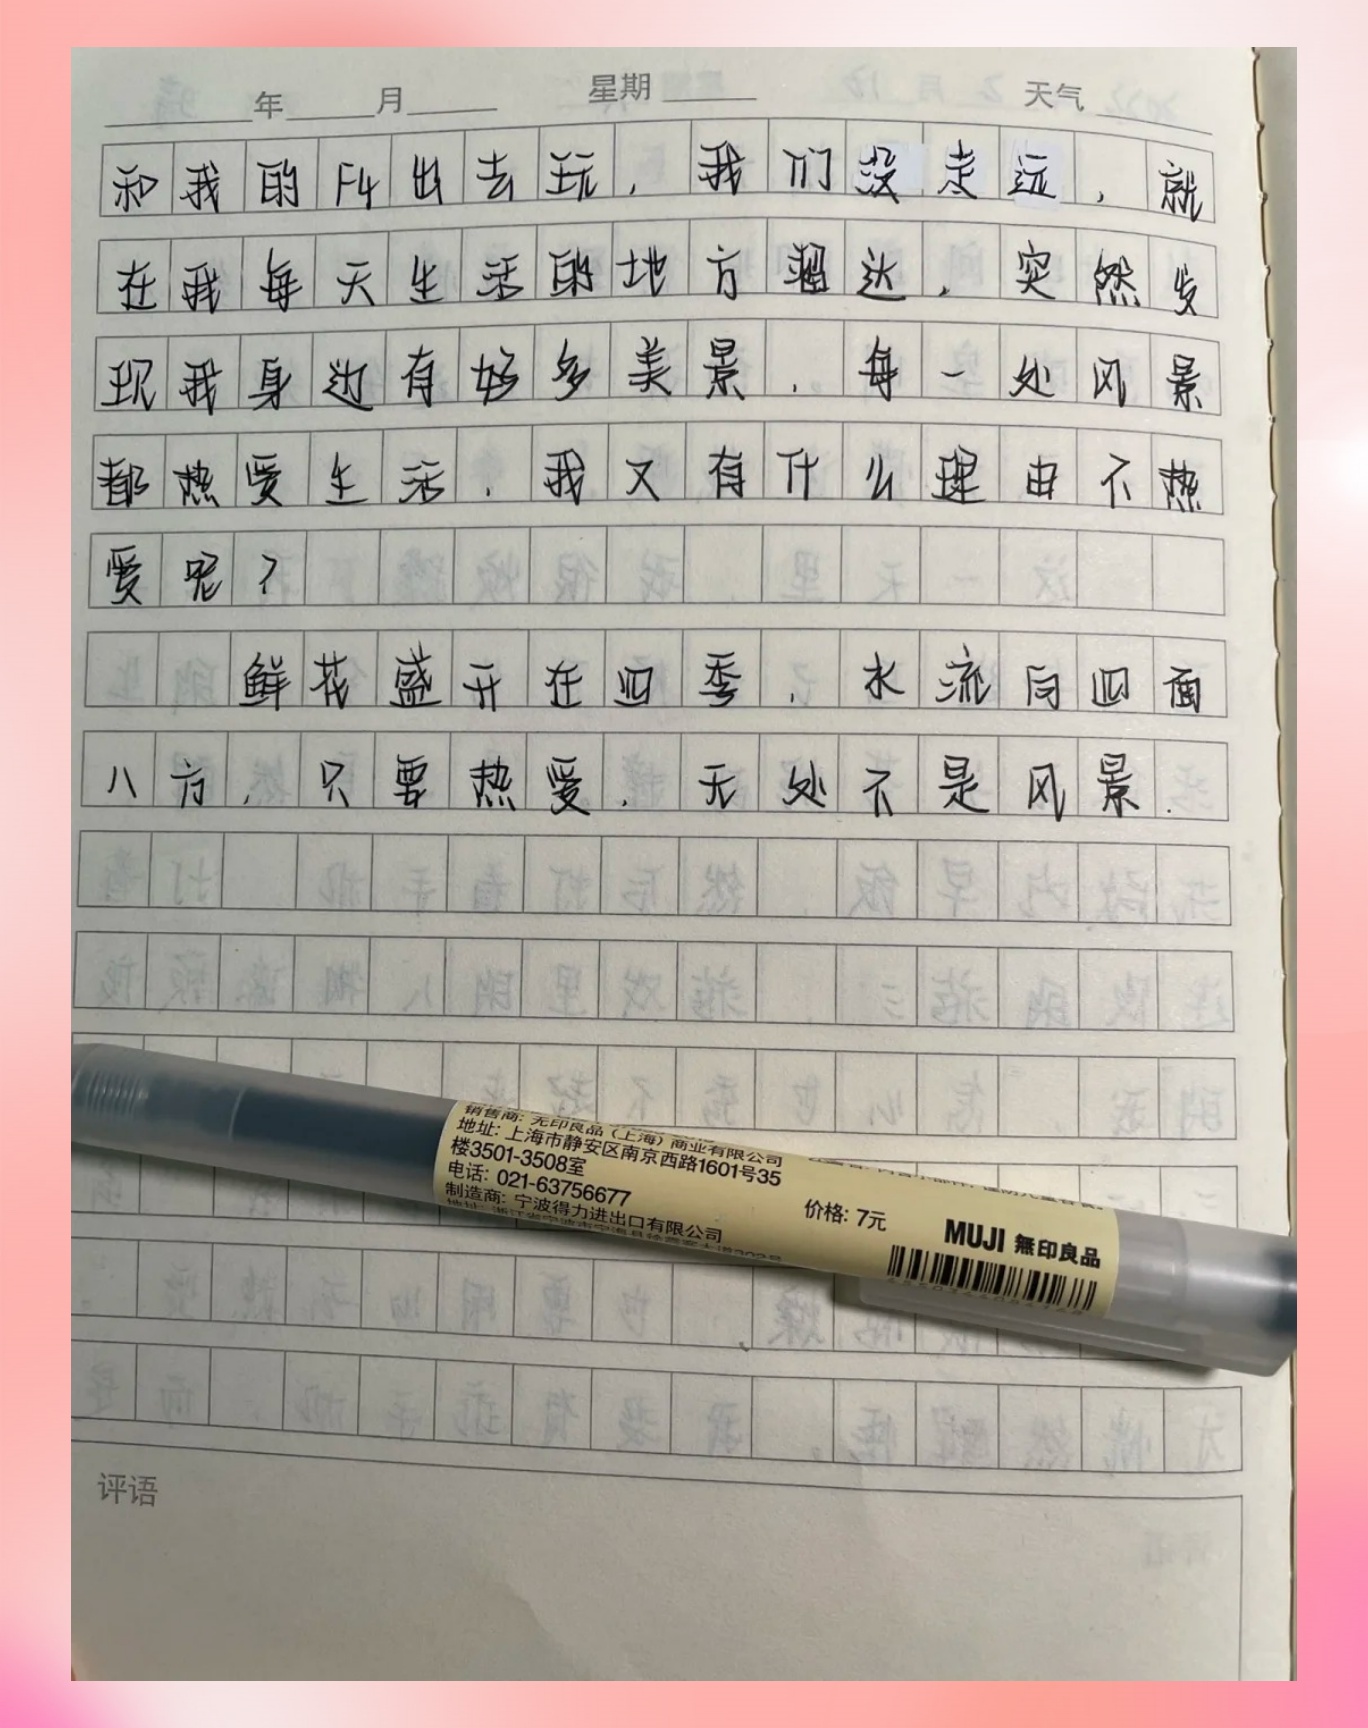 年 月 星期 天气
和我的F4出去玩，我们没走远，就
在我每天生活的地方溜达，突然发
现我身边有好多美景，每一处风景
都热爱生活，我又有什么理由不热
爱呢？
鲜花盛开在四季，水流向四面
八方，只要热爱，无处不是风景.
销售商: 无印良品（上海）商业有限公司
地址: 上海市静安区南京西路1601号35
楼3501-3508室
电话: 021-63756677
制造商: 宁波得力进出口有限公司
价格: 7元
MUJI 無印良品
评语